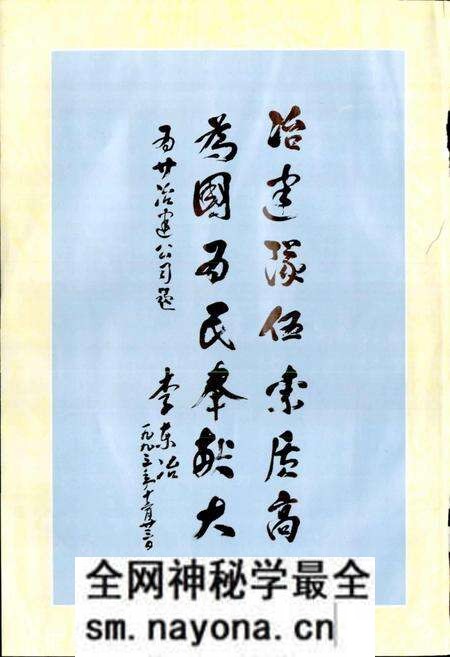 冶建隊伍素质高
為國为民奉献大
为廿冶建公司题
李东冶
一九九三年十二月廿三日
全网神秘学最全
sm.nayona.cn